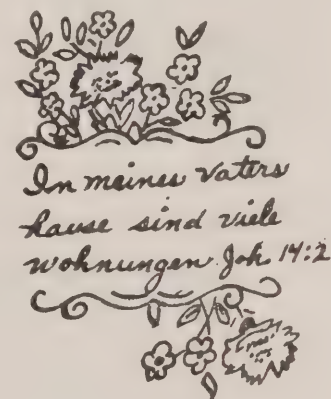 In meines Vaters
hause sind viele
wohnungen Joh. 14:2